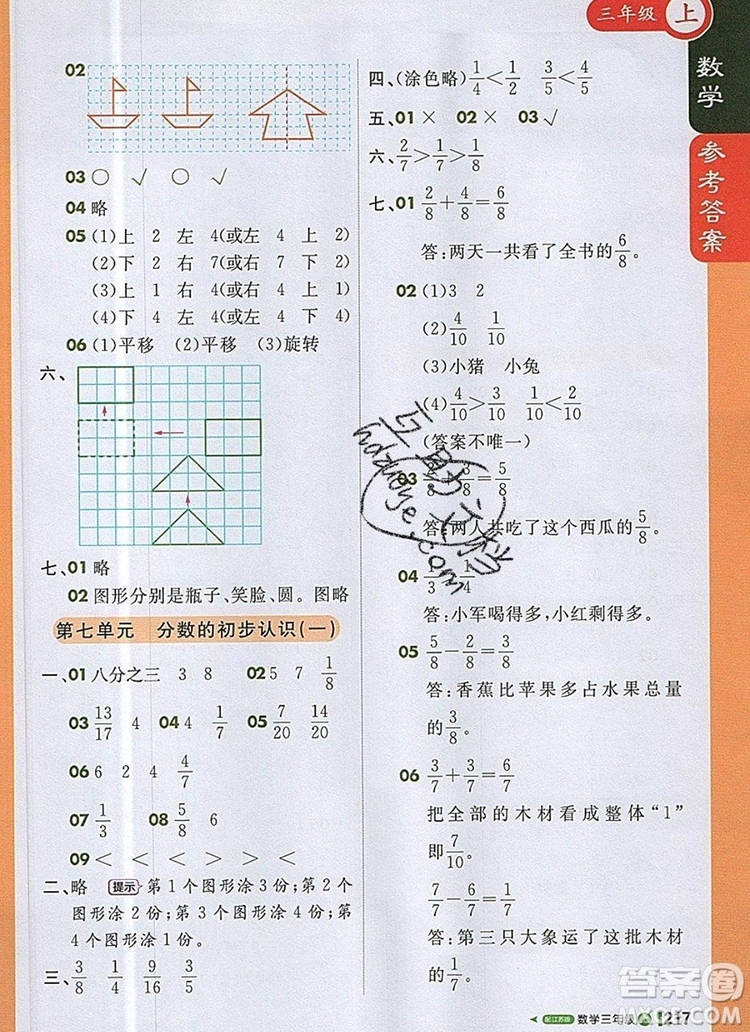 三年级 上
数学
参考答案
02
03 ○ √ ○ √
04 略
05 (1)上 2 左 4(或左 4 上 2)
(2)下 2 右 7(或右 7 下 2)
(3)上 1 右 4(或右 4 上 1)
(4)下 4 左 4(或左 4 下 4)
06 (1)平移 (2)平移 (3)旋转
六、
七、01 略
02 图形分别是瓶子、笑脸、圆。图略
第七单元 分数的初步认识(一)
一、01 八分之三 3 8 02 5 7 1/8
03 13/17 4 04 4 1/7 05 7/20 14/20
06 6 2 4 4/7
07 1/3 08 5/8 6
09 < < > > < <
二、略 提示 第1个图形涂3份;第2个
图形涂2份;第3个图形涂9份;第4
个图形涂1份。
三、3/8 1/4 9/16 3/5
四、(涂色略) 1/4<1/2 3/5<4/5
五、01 × 02 × 03 √
六、2/7>1/7>1/8
七、01 2/8+4/8=6/8
答:两天一共看了全书的6/8。
02 (1)3 2
(2)4/10 1/10
(3)小猪 小兔
(4)4/10>3/10 1/10<2/10
(答案不唯一)
03 /8+/8=5/8
答:两人共吃了这个西瓜的5/8。
04 1/3>1/4
答:小军喝得多,小红剩得多。
05 5/8-2/8=3/8
答:香蕉比苹果多占水果总量
的3/8。
06 3/7+3/7=6/7
把全部的木材看成整体“1”
即7/10。
7/7-6/7=1/7
答:第三只大象运了这批木材
的1/7。
配江苏版 数学三年级 217
答案圈